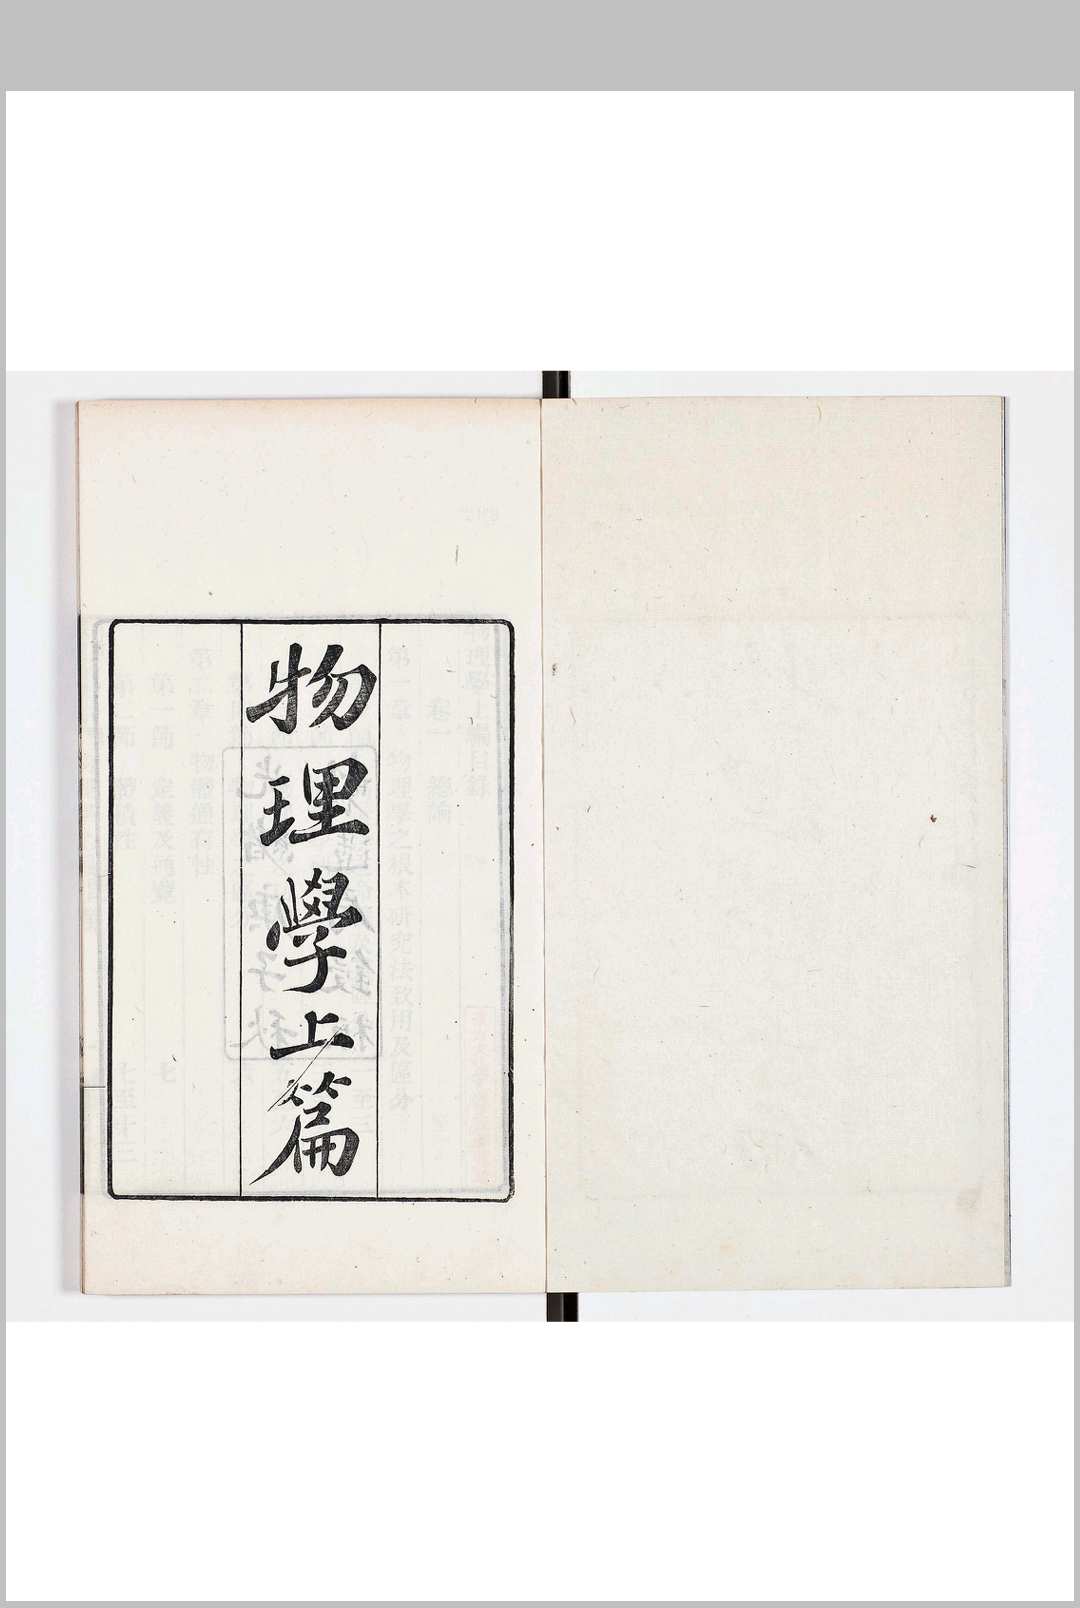 物理學上篇